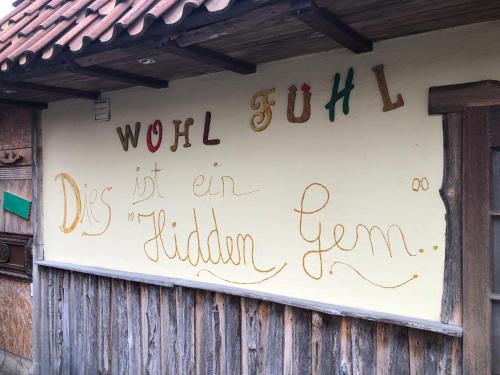 WOHL FÜHL
Dies ist ein
"Hidden Gem"..